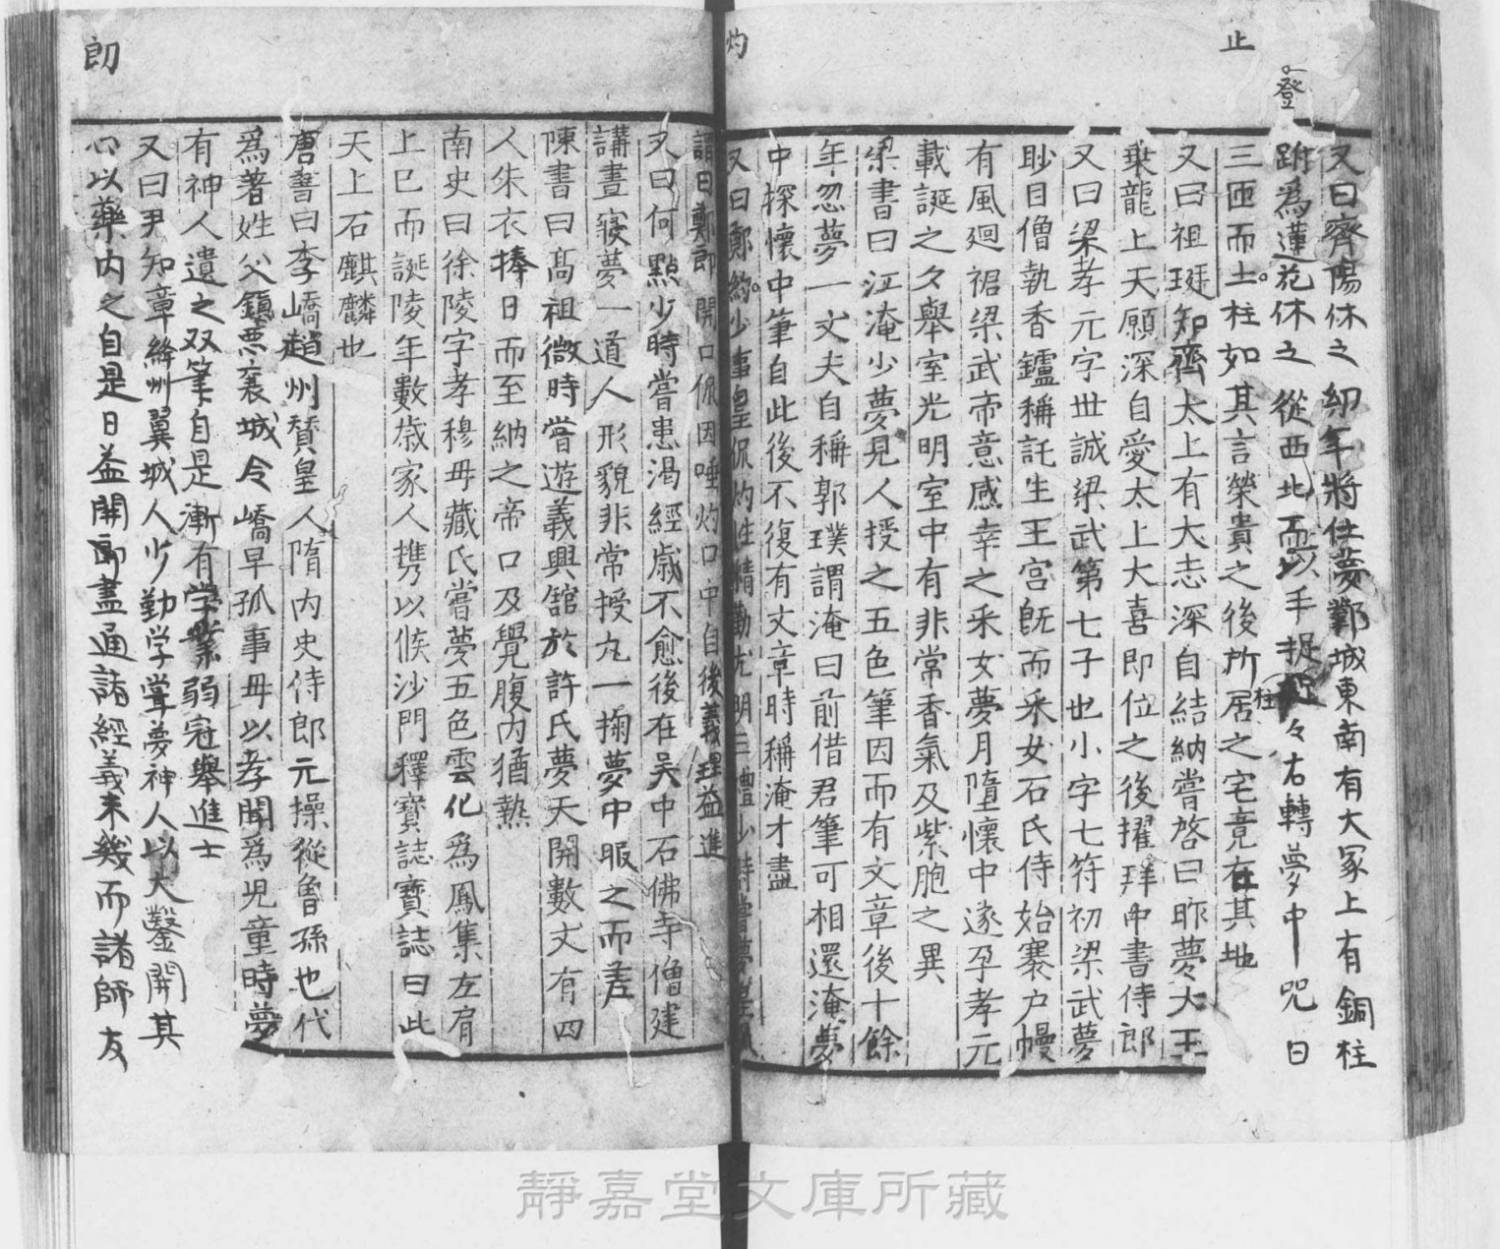 止
登
又曰齊陽休之幼年將仕夢鄴城東南有大冢上有銅柱
趺為蓮花休之從西北而以手捉柱々右轉夢中咒曰
三匝而土柱如其言榮貴之後所居之宅竟在其地
又曰祖珽知齊太上有大志深自結納嘗啓曰昨夢大王
乗龍上天願深自愛太上大喜即位之後擢拜中書侍郎
又曰梁孝元字世誠梁武第七子也小字七符初梁武夢
眇目僧執香鑪稱託生王宮既而釆女石氏侍始褰户幔
有風廻裾梁武帝意感幸之釆女夢月隨懷中遂孕孝元
載誕之夕舉室光明室中有非常香氣及紫胞之異
梁書曰江淹少夢見人授之五色筆因而有文章後十餘
年忽夢一丈夫自稱郭璞謂淹曰前借君筆可相還淹夢
中探懷中筆自此後不復有文章時稱淹才盡
又曰鄭灼少事皇侃灼性精勤尤明三禮少時嘗夢皇侃
灼
謂曰鄭郎開口侃因唾灼口中自後義理益進
又曰何點少時嘗患渴經歲不愈後在吳中石佛寺僧建
講晝寢夢一道人形貌非常授丸一掬夢中服之而差
陳書曰髙祖微時嘗遊義興舘於許氏夢天開數丈有四
人朱衣捧日而至納之帝口及覺腹内猶熱
南史曰徐陵字孝穆毋臧氏嘗夢五色雲化為鳳集左肩
上巳而誕陵年數歲家人攜以候沙門釋寶誌寶誌曰此
天上石麒麟也
唐書曰李嶠趙州賛皇人隋内史侍郎元操從曾孫也代
為著姓父鎮惡襄城令嶠早孤事毋以孝聞為児童時夢
有神人遺之双筆自是漸有学業弱冠舉進士
又曰尹知章絳州翼城人少勤学嘗夢神人以大鑿開其
心以藥内之自是日益開朗盡通諸經義未幾而諸師友
郎
静嘉堂文庫所藏